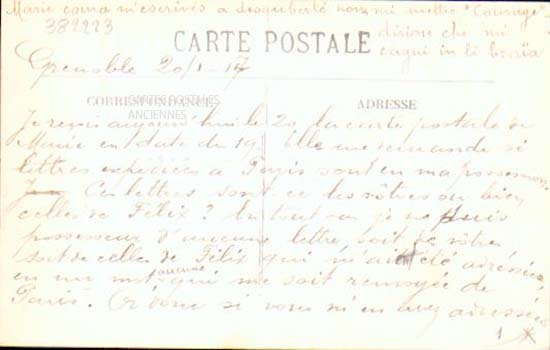 Marie coma m'escrivès a
non, mi mettre "Courage"
dision che mi
382223
CARTE POSTALE
cagni in li
Grenoble 20/1-17
CORRESPONDANCE
ADRESSE
CARTES POSTALES
ANCIENNES
Je reçois aujourd'hui le 20 la carte postale de
Marie en date du 19. Elle me demande si
lettres expédiées à Paris sont en ma possession
Ces lettres sont-ce les vôtres ou bien
celles de Félix ? En tout cas je ne suis
possesseur d'aucune lettre, soit de vôtre
soit de celle de Félix qui m'aient été adressées
en un mot aucune qui me soit renvoyée de
Paris. Or donc si vous m'en avez adressées
1